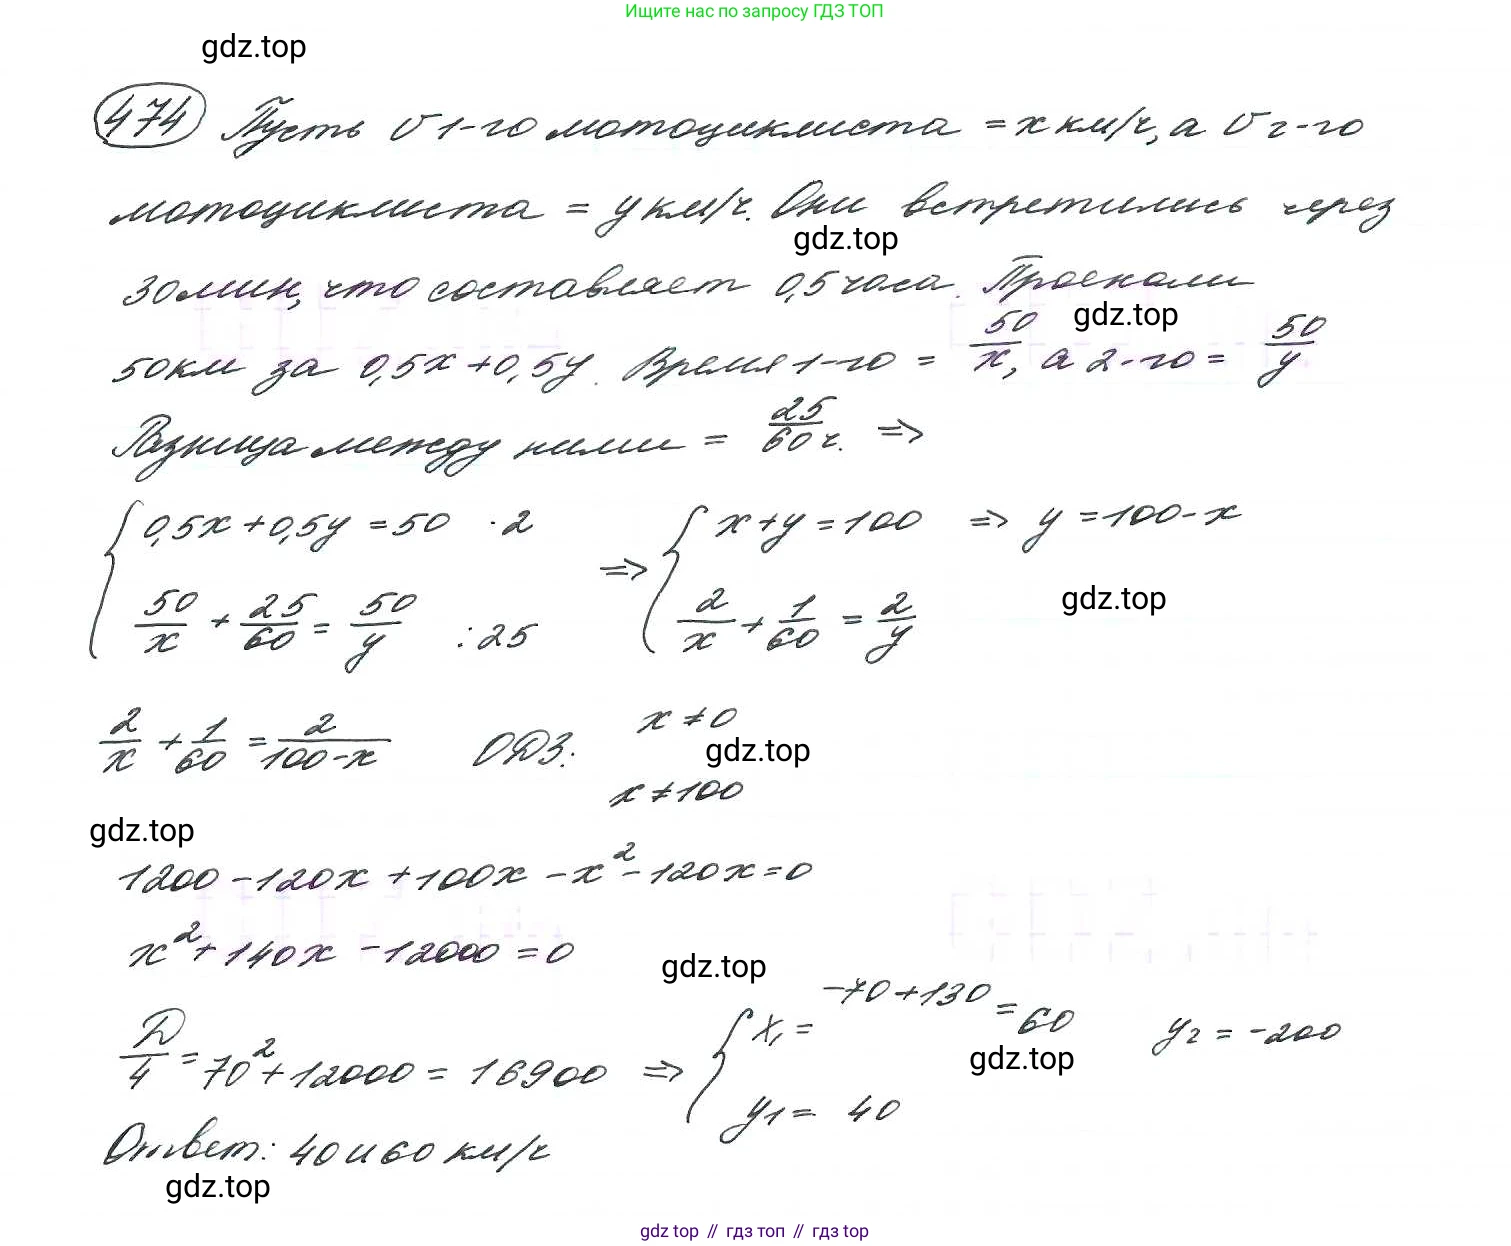 Ищите нас по запросу ГДЗ ТОП
gdz.top
474 Пусть υ 1-го мотоциклиста = x км/ч, а υ 2-го
мотоциклиста = y км/ч. Они встретились через
gdz.top
30 мин, что составляет 0,5 часа. Проехали
gdz.top
50 км за 0,5x + 0,5y. Время 1-го = 50/x, а 2-го = 50/y
Разница между ними = 25/60 ч. =>
{ 0,5x + 0,5y = 50 · 2 => { x + y = 100 => y = 100 - x
50/x + 25/60 = 50/y : 25 2/x + 1/60 = 2/y
gdz.top
2/x + 1/60 = 2/(100-x) ОДЗ: x ≠ 0
gdz.top
x ≠ 100
gdz.top
1200 - 120x + 100x - x² - 120x = 0
x² + 140x - 12000 = 0
gdz.top
Д/4 = 70² + 12000 = 16900 => { x₁ = -70 + 130 = 60 y₂ = -200
gdz.top
y₁ = 40
Ответ: 40 и 60 км/ч
gdz.top
gdz top // гдз топ // гдз top